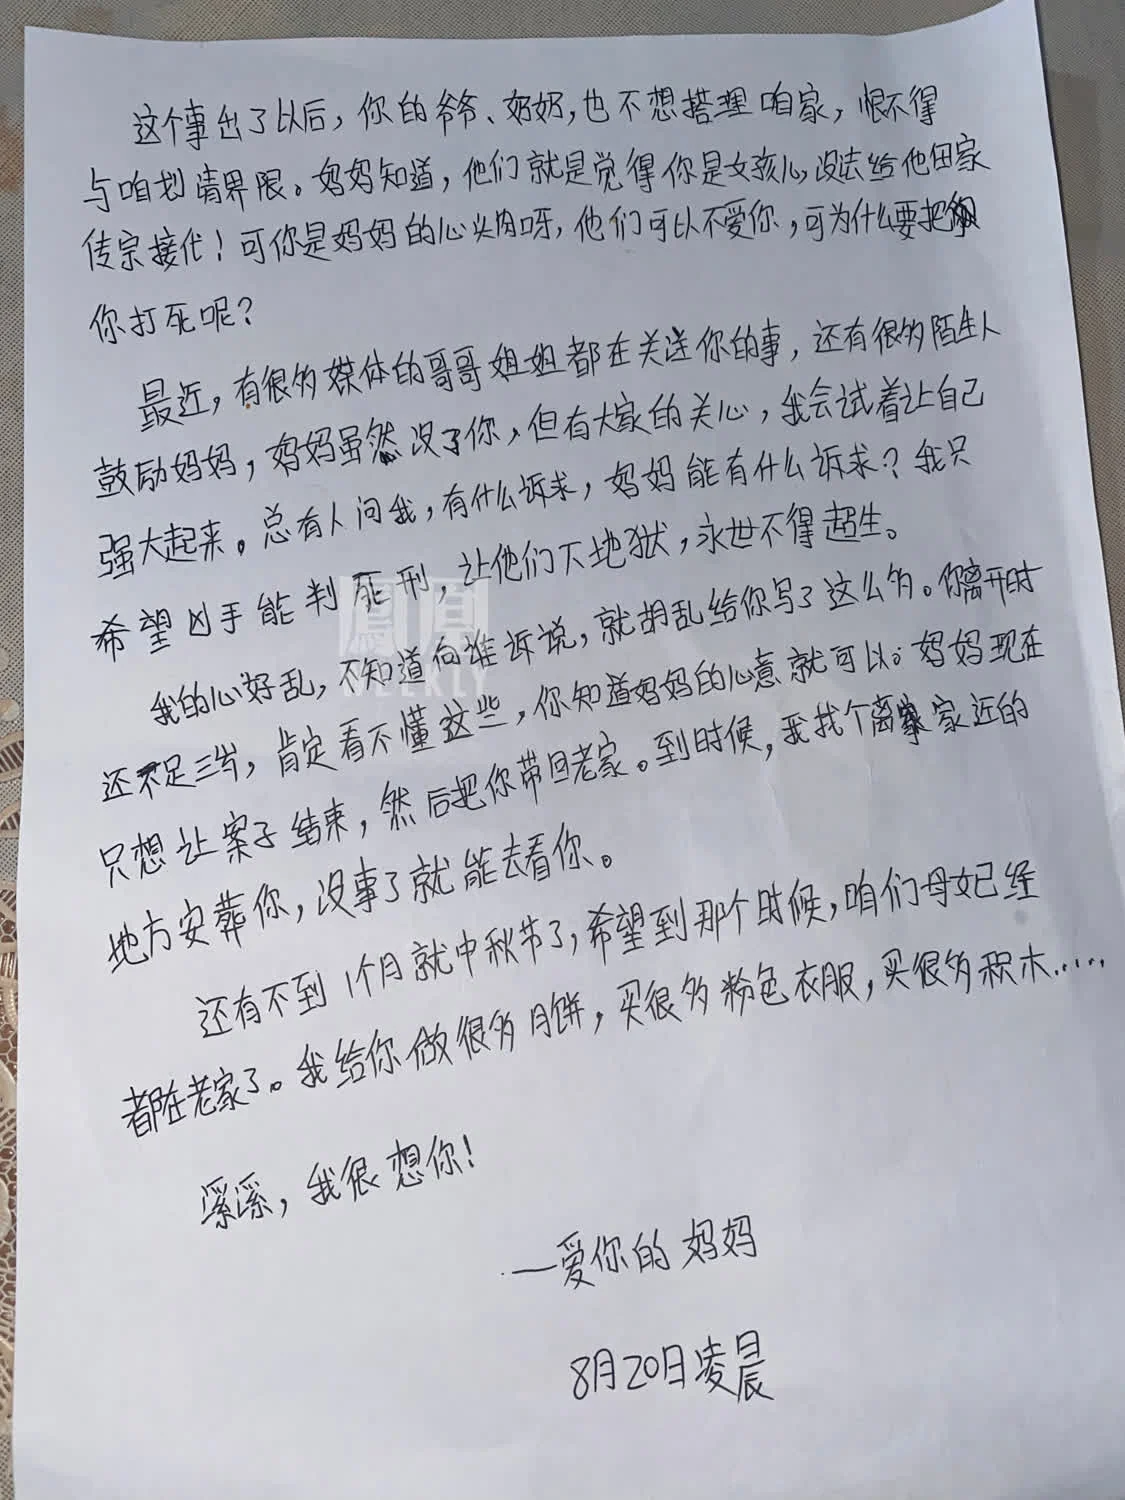 这个事出了以后，你的爷爷、奶奶，也不想搭理咱家，恨不得
与咱划清界限。妈妈知道，他们就是觉得你是女孩儿，没法给他田家
传宗接代！可你是妈妈的心头肉呀，他们可以不爱你，可为什么要把
你打死呢？
最近，有很多媒体的哥哥姐姐都在关注你的事，还有很多陌生人
鼓励妈妈，妈妈虽然没了你，但有大家的关心，我会试着让自己
强大起来。总有人问我，有什么诉求，妈妈能有什么诉求？我只
希望凶手能判死刑，让他们下地狱，永世不得超生。
我的心好乱，不知道向谁诉说，就胡乱给你写了这么多。你离开时
还不足三岁，肯定看不懂这些，你知道妈妈的心意就可以。妈妈现在
只想让案子结束，然后把你带回老家。到时候，我找个离家近的
地方安葬你，没事了就能去看你。
还有不到1个月就中秋节了，希望到那个时候，咱们母女已经
都在老家了。我给你做很多月饼，买很多粉色衣服，买很多积木……
溪溪，我很想你！
—爱你的妈妈
8月20日凌晨
凰凰
WEEKLY